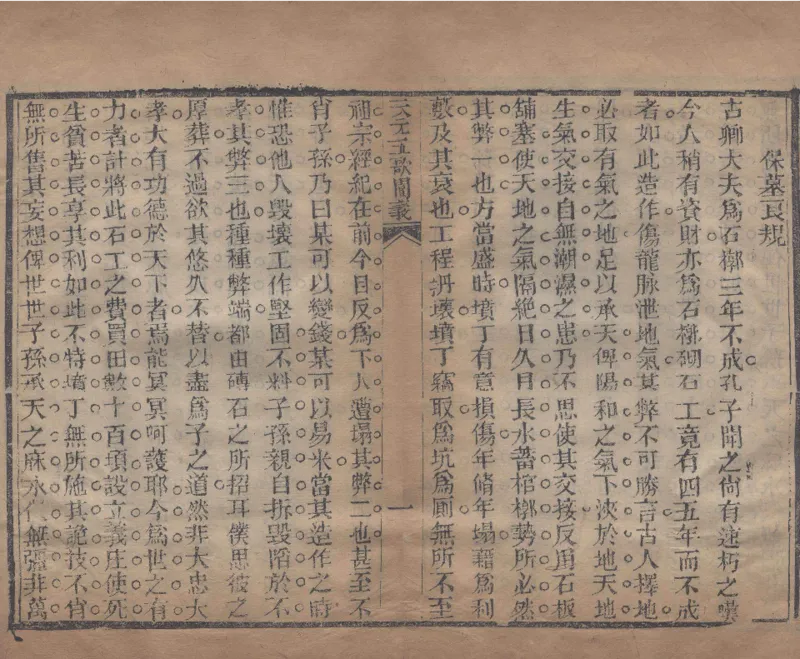 保墓良規
古卿大夫爲石槨三年不成孔子聞之尚有速朽之嘆
今人稍有資財亦爲石槨砌石工竟有四五年而不成
者如此造作傷龍脉泄地氣其弊不可勝言古人擇地
必取有氣之地足以承天俾陽和之氣下浹於地天地
生氣交接自無潮濕之患乃不思使其交接反用石板
舖塞使天地之氣隔絶日久月長水蓄棺槨勢所必然
其弊一也方當盛時墳丁有意損傷年脩年塌藉爲利
藪及其衰也工程坍壞墳丁竊取爲坑爲厠無所不至
天元五歌闡義 一
祖宗經紀在前今日反爲下人遭塌其弊二也甚至不
肖子孫乃曰某可以變錢某可以易米當其造作之時
惟恐他人毀壞工作堅固不料子孫親自拆毀陷於不
孝其弊三也種種弊端都由磚石之所招耳僕思彼之
厚葬不過欲其悠久不替以盡爲子之道然非大忠大
孝大有功德於天下者焉能冥冥呵護耶今爲世之有
力者計將此石工之費買田數十百頃設立義庄使死
生貧苦長享其利如此不特墳丁無所施其詭技不肖
無所售其妄想俾世世子孫承天之庥永無彊非萬